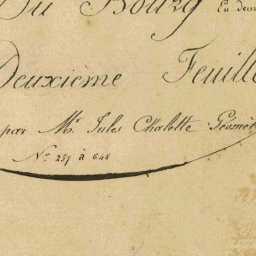 Du Bourg En deux
Deuxième Feuille
par Mr. Jules Chalette Géomèt
No. 257 à 648